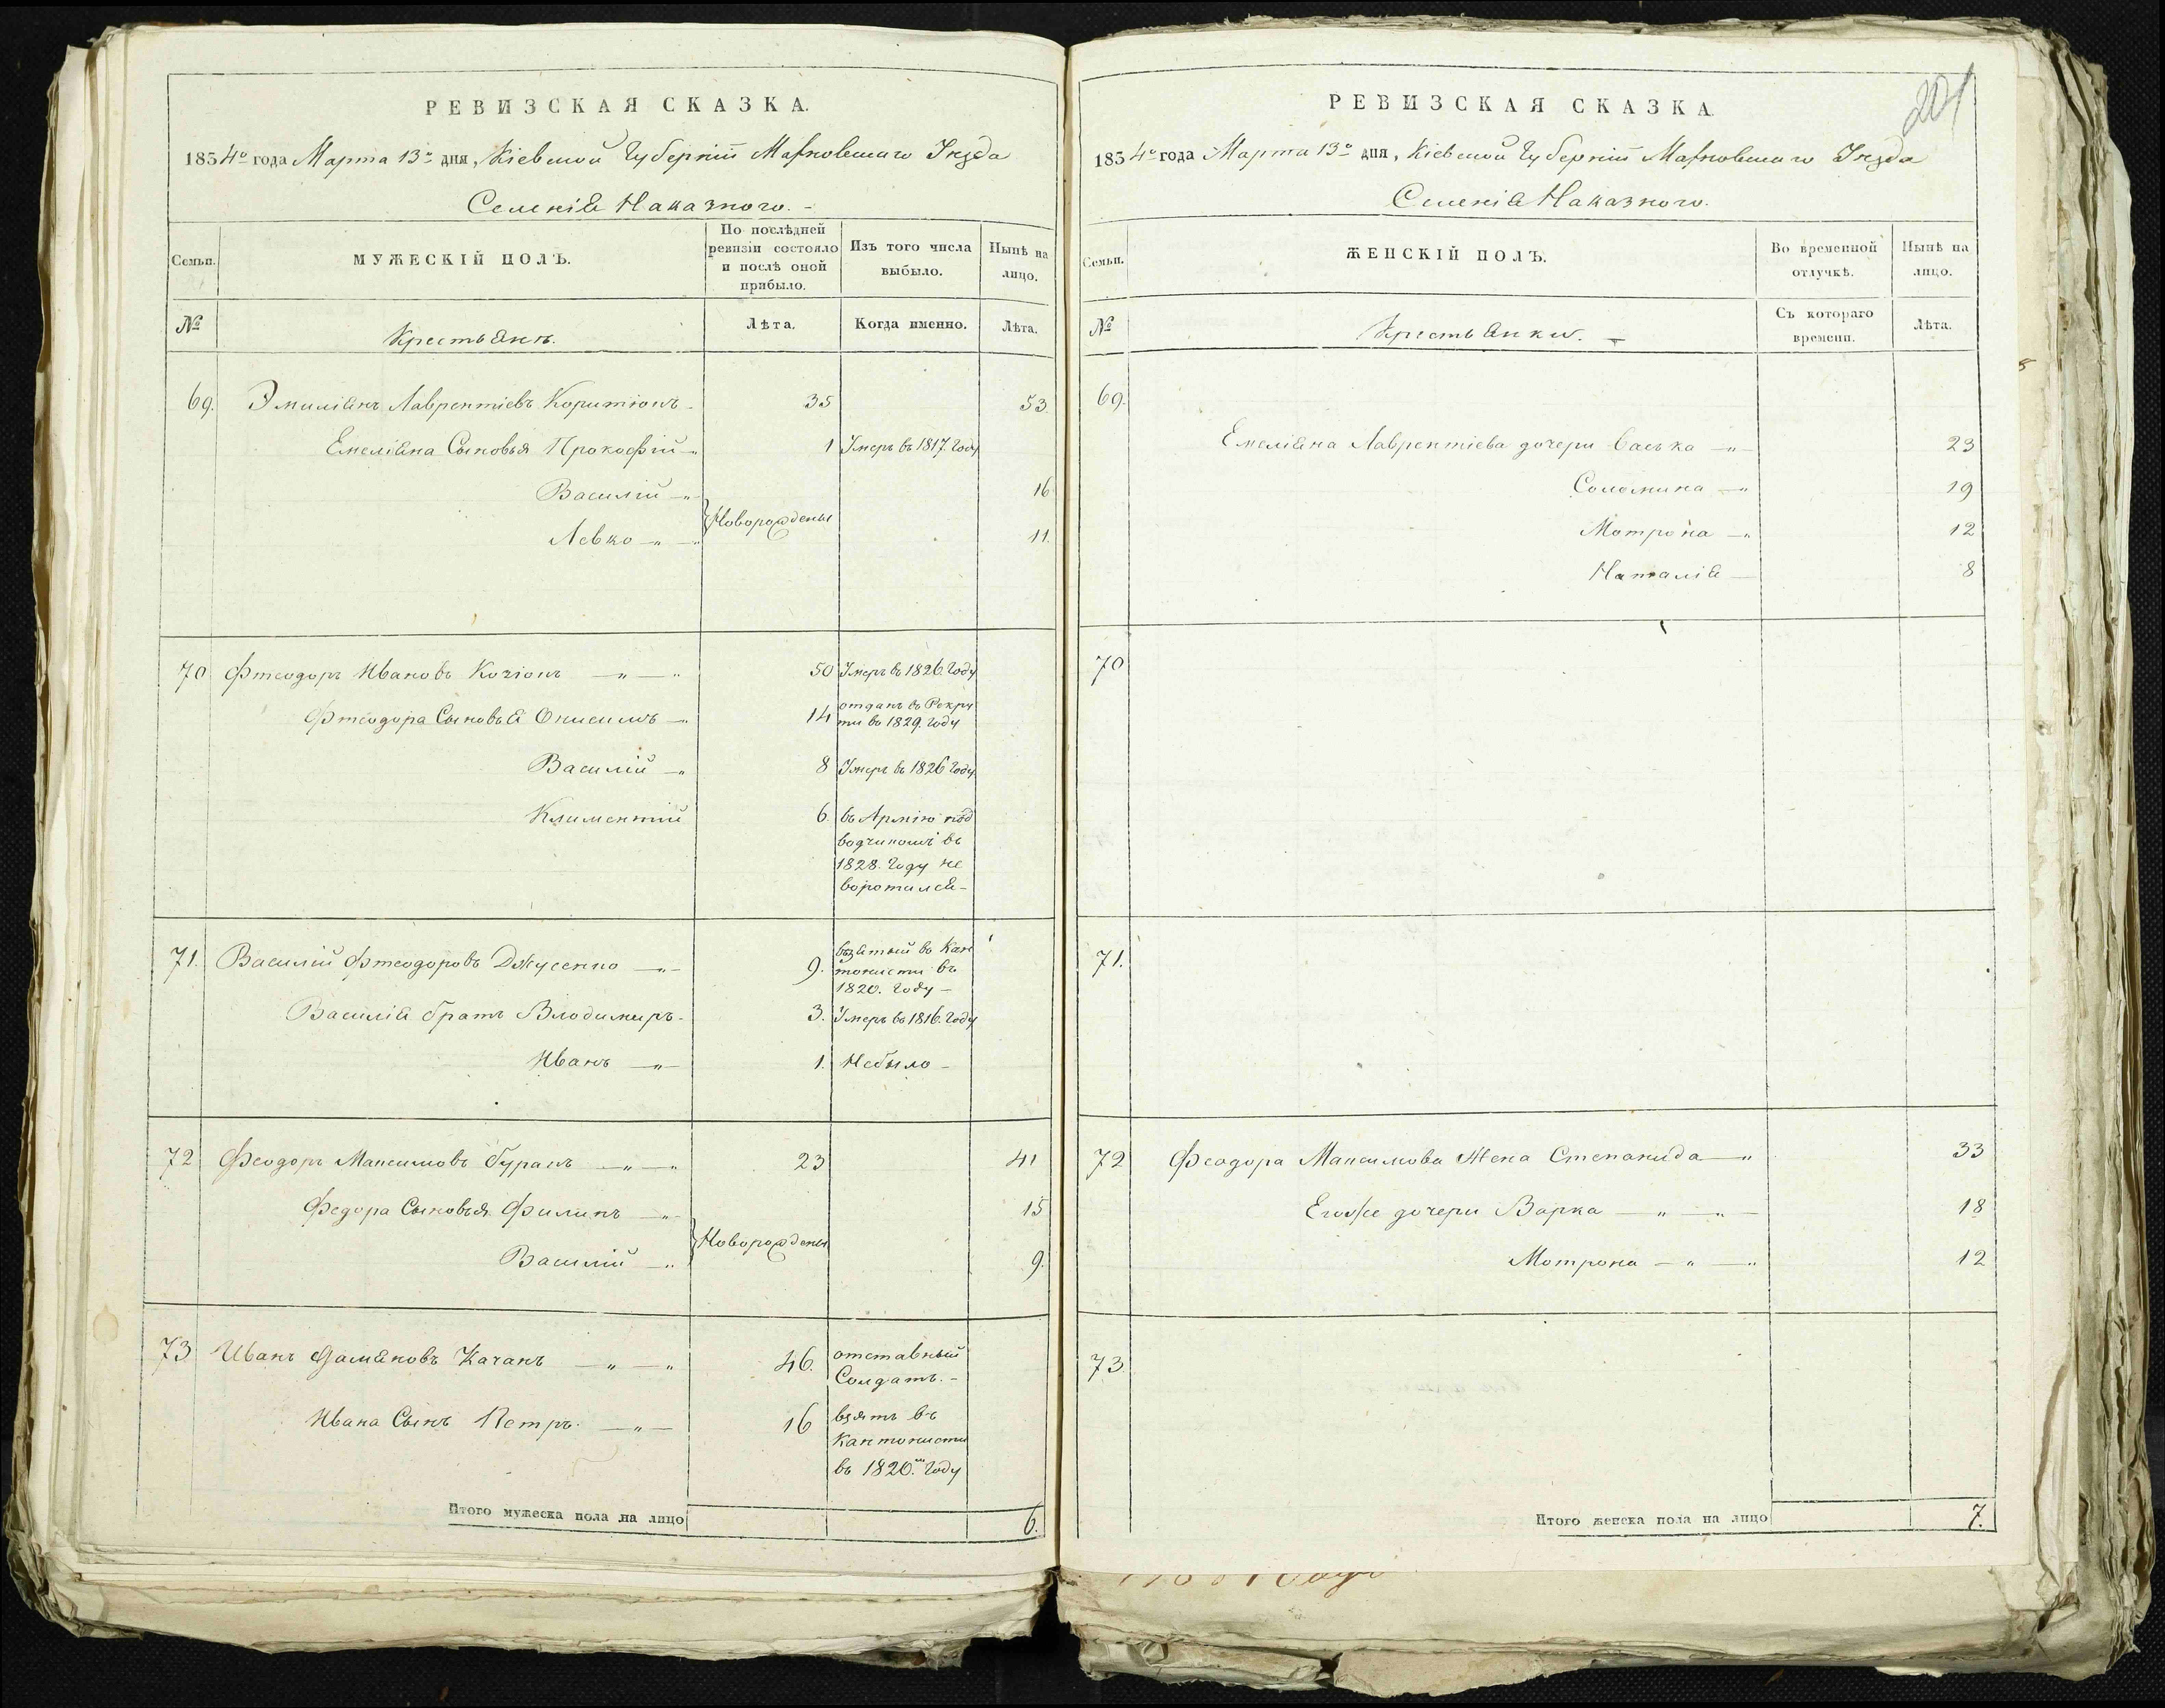 РЕВИЗСКАЯ СКАЗКА.
1834го года Марта 13го дня, Кіевской Губерніи Махновскаго Уезда
Селенія Наказного. -
Семьи.
МУЖЕСКІЙ ПОЛЪ.
По послѣдней ревизіи состояло и послѣ оной прибыло.
Изъ того числа выбыло.
Нынѣ на лицо.
№
Крестьянъ.
Лѣта.
Когда именно.
Лѣта.
69. Эмиліянъ Лаврентіевъ 35 53.
Емеліяна Сыновья Прокофій 1 Умеръ въ 1817. Году
Василій 16
Новорождены
Левко 11.
70 Фтеодоръ Ивановъ 50 Умеръ въ 1826. Году
Фтеодора Сыновья Онисимъ 14 отданъ въ Рекру
ти во 1829. Году
Василій 8 Умеръ въ 1826 Году
Климентій 6. въ Армію под
водчикомъ въ
1828. Году не
воротился -
71. Василій Фтеодоровъ 9. взятый во Кан
тонисти въ
1820. Году -
Василія братъ Влодимиръ 3. Умеръ во 1816. Году
Иванъ 1. Небыло -
72 Феодоръ Максимовъ Буракъ 23 41
Федора Сыновья Филипъ 15
Новорождены
Василій 9.
73 Иванъ Дамяновъ Качанъ 46. отставный
Солдатъ. -
Ивана Сынъ Петръ. 16 взятъ въ
Кантонисти
въ 1820.м Году
Итого мужеска пола на лицо 6.
201
РЕВИЗСКАЯ СКАЗКА.
1834го года Марта 13го дня, Кіевской Губерніи Махновскаго Уезда
Селенія Наказного.
Семьи.
ЖЕНСКІЙ ПОЛЪ.
Во временной отлучкѣ.
Нынѣ на лицо.
№
Крестьянки.
Съ котораго времени.
Лѣта.
69.
Емеліяна Лаврентіева дочери Васька 23
Соломина 19
Мотрона 12
Наталія 8
70
71.
72 Феодора Максимова Жена Степанида 33
Егоже дочери Варка 18
Мотрона 12
73.
Итого женска пола на лицо 7.